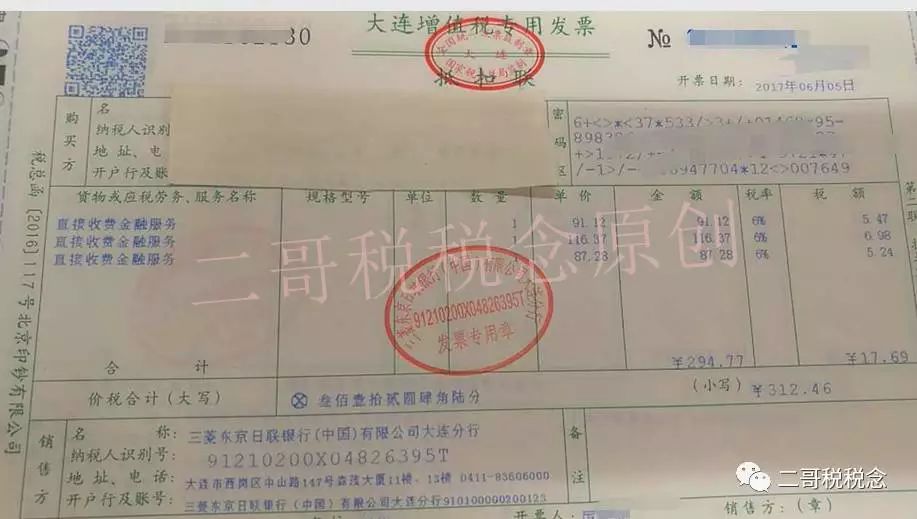 大连增值税专用发票
№
全国统一发票监制章
大连
国家税务总局监制
抵扣联
开票日期： 2017年06月05日
购买方
名
纳税人识别
地 址、电
开户行及账
密码区
6+<>*<37*533/>3+/+
/-1>/-
6947704*12<>007649
货物或应税劳务、服务名称 规格型号 单位 数 量 单 价 金 额 税率 税 额
直接收费金融服务 1 91.12 91.12 6% 5.47
直接收费金融服务 1 116.37 116.37 6% 6.98
直接收费金融服务 1 87.28 87.28 6% 5.24
二哥税税念原创
91210200X04826395T
发票专用章
合 计 ¥294.77 ¥17.69
价税合计（大写） ⊗ 叁佰壹拾贰圆肆角陆分 （小写） ¥312.46
销售方
名 称： 三菱东京日联银行(中国)有限公司大连分行
纳税人识别号： 91210200X04826395T
地 址、电 话： 大连市西岗区中山路147号森茂大厦11楼、13楼 0411-83606000
开户行及账号： 三菱东京日联银行（中国）有限公司大连分行910100000200123
备注
开票人：
销售方：（章）
税总函［2016］117号北京印钞有限公司
二哥税税念